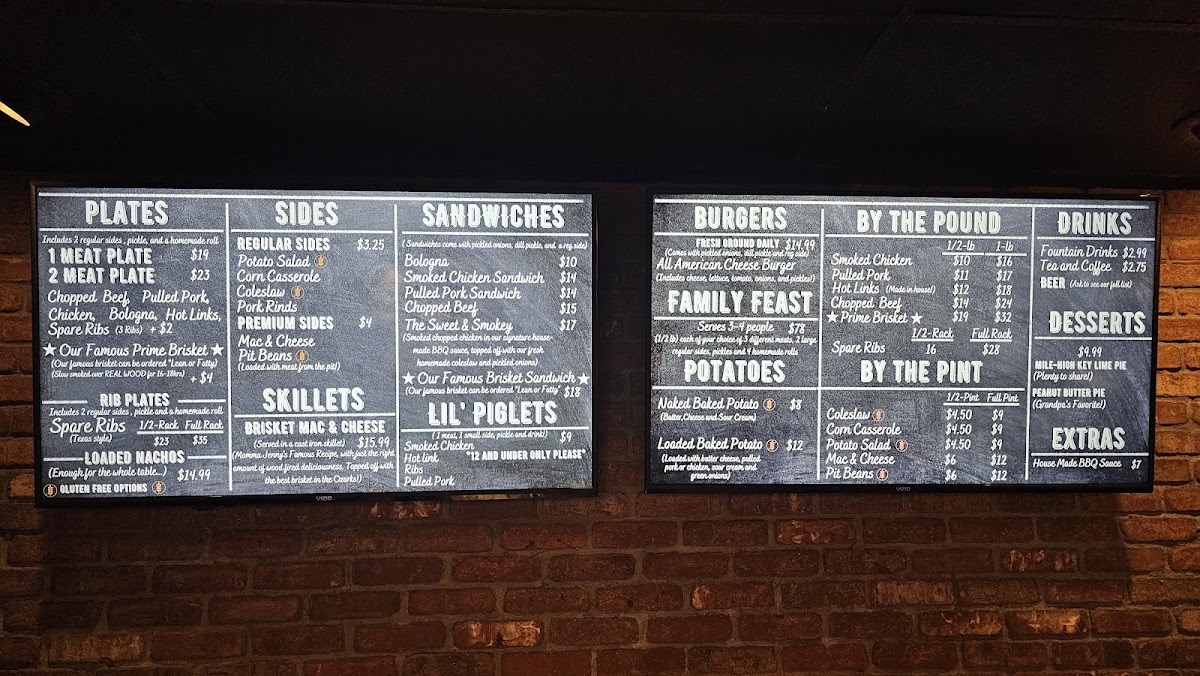 PLATES
Includes 2 regular sides, pickle, and a homemade roll
1 MEAT PLATE $19
2 MEAT PLATE $23
Chopped Beef, Pulled Pork,
Chicken, Bologna, Hot Links,
Spare Ribs (3 Ribs) + $2
★ Our Famous Prime Brisket ★
(Our famous brisket can be ordered "Lean or Fatty)
(Slow smoked over REAL WOOD for 16-18hrs)
+ $4
RIB PLATES
Includes 2 regular sides, pickle and a homemade roll
Spare Ribs 1/2-Rack Full Rack
(Texas style) $23 $35
LOADED NACHOS
(Enough for the whole table...) $14.99
GLUTEN FREE OPTIONS
SIDES
REGULAR SIDES $3.25
Potato Salad
Corn Casserole
Coleslaw
Pork Rinds
PREMIUM SIDES $4
Mac & Cheese
Pit Beans
(Loaded with meat from the pit!)
SKILLETS
BRISKET MAC & CHEESE
(Served in a cast iron skillet) $15.99
(Momma Jenny's Famous Recipe, with just the right
amount of wood fired deliciousness. Topped off with
the best brisket in the Ozarks!)
SANDWICHES
( Sandwiches come with pickled onions, dill pickle, and a reg side)
Bologna $10
Smoked Chicken Sandwich $14
Pulled Pork Sandwich $14
Chopped Beef $15
The Sweet & Smokey $17
(Smoked chopped chicken in our signature house-
made BBQ sauce, topped off with our fresh
homemade coleslaw and pickled onions)
★ Our Famous Brisket Sandwich ★
(Our famous brisket can be ordered "Lean or Fatty" $18
LIL' PIGLETS
(1 meat, 1 small side, pickle and drink!) $9
Smoked Chicken
Hot link "12 AND UNDER ONLY PLEASE"
Ribs
Pulled Pork
VIZIO
BURGERS
FRESH GROUND DAILY $14.99
(Comes with pickled onions, dill pickle and reg side)
All American Cheese Burger
(Includes cheese, lettuce, tomato, onions, and pickles!)
FAMILY FEAST
Serves 3-4 people $78
(1/2 lb) each of your choice of 3 different meats, 2 large
regular sides, pickles and 4 homemade rolls
POTATOES
Naked Baked Potato $8
(Butter, Cheese and Sour Cream)
Loaded Baked Potato $12
(Loaded with butter cheese, pulled
pork or chicken, sour cream and
green onions)
BY THE POUND
1/2-lb 1-lb
Smoked Chicken $10 $16
Pulled Pork $11 $17
Hot Links (Made in house!) $12 $18
Chopped Beef $14 $24
★ Prime Brisket ★ $19 $32
1/2-Rack Full Rack
Spare Ribs 16 $28
BY THE PINT
1/2-Pint Full Pint
Coleslaw $4.50 $9
Corn Casserole $4.50 $9
Potato Salad $4.50 $9
Mac & Cheese $6 $12
Pit Beans $6 $12
DRINKS
Fountain Drinks $2.99
Tea and Coffee $2.75
BEER (Ask to see our full list)
DESSERTS
$9.99
MILE-HIGH KEY LIME PIE
(Plenty to share!)
PEANUT BUTTER PIE
(Grandpa's Favorite!)
EXTRAS
House Made BBQ Sauce $7
VIZIO